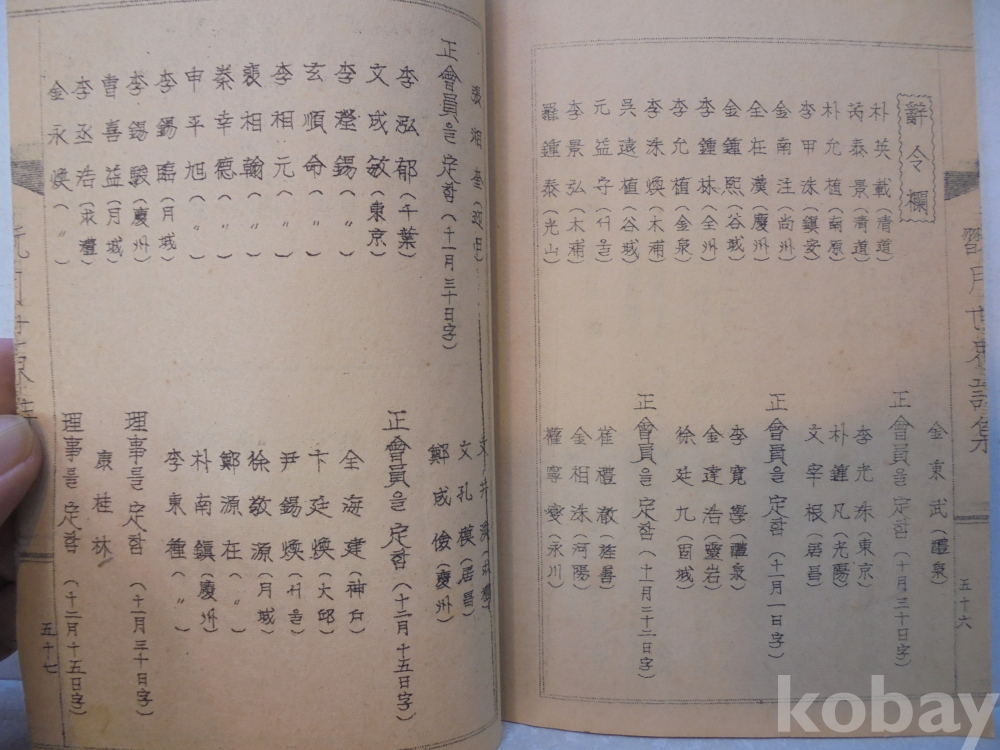 辭令欄
朴英載(清道)
芮泰景(清道)
朴允植(南原)
李甲洙(鎭安)
金南注(尚州)
全在漢(慶州)
金鍾熙(谷城)
李鍾林(全州)
李允植(金泉)
李洙煥(木浦)
吳遠植(谷城)
元益守(서울)
李景弘(木浦)
羅鍾泰(光山)
金東武(醴泉)
正會員을 定함 (十月三十日字)
李光洙(東京)
朴鍾凡(光陽)
文宰根(居昌)
正會員을 定함 (十一月一日字)
李寬學(醴泉)
金達浩(靈岩)
徐廷九(固城)
正會員을 定함 (十一月二十二日字)
崔禮澈(旌善)
金相洙(河陽)
權寧燮(永川)
五十六
正會員을 定함 (十一月三十日字)
李泓郁(千葉)
文成敏(東京)
李瀅錫(〃)
玄順命(〃)
李相元(〃)
裵相翰(〃)
秦幸德(〃)
申平旭(〃)
李錫臨(月城)
李錫駿(慶州)
曺喜益(月城)
李丞浩(求禮)
金永煥(〃)
文孔模(居昌)
鄭成儉(慶州)
正會員을 定함 (十二月十五日字)
全海建(神戶)
卞廷煥(大邱)
尹錫煥(서울)
徐敬源(月城)
鄭源在(〃)
朴南鎭(慶州)
李東鍾(〃)
理事를 定함 (十一月三十日字)
康桂林
理事를 定함 (十二月十五日字)
五十七
kobay